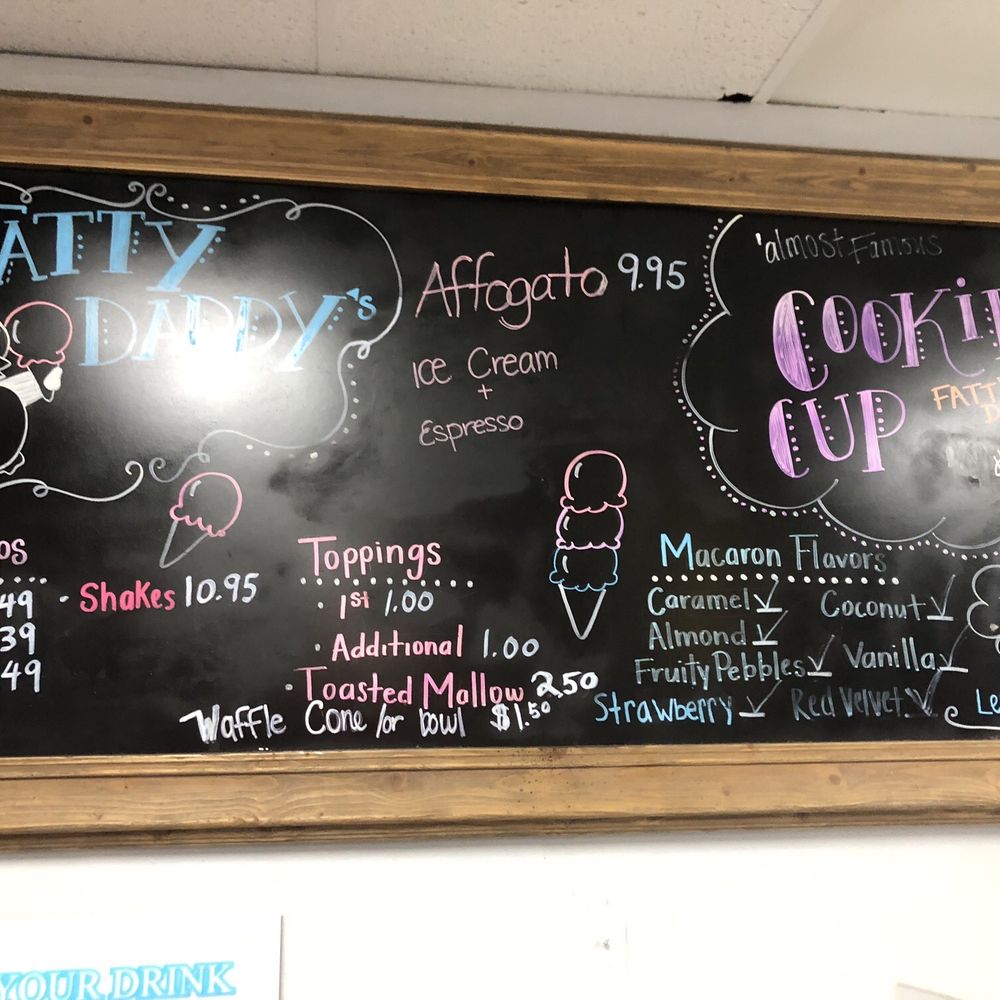 FATTY
DADDY's
Affogato 9.95
Ice Cream
+
Espresso
'almost Famous
COOKI
CUP
FATT
D
os
49
39
49
· Shakes 10.95
Toppings
· 1st 1.00
· Additional 1.00
· Toasted Mallow 2.50
Waffle Cone /or bowl $1.50
Macaron Flavors
Caramel ✓ Coconut ✓
Almond ✓
Fruity Pebbles ✓ Vanilla ✓
Strawberry ✓ Red Velvet ✓
Le
YOUR DRINK